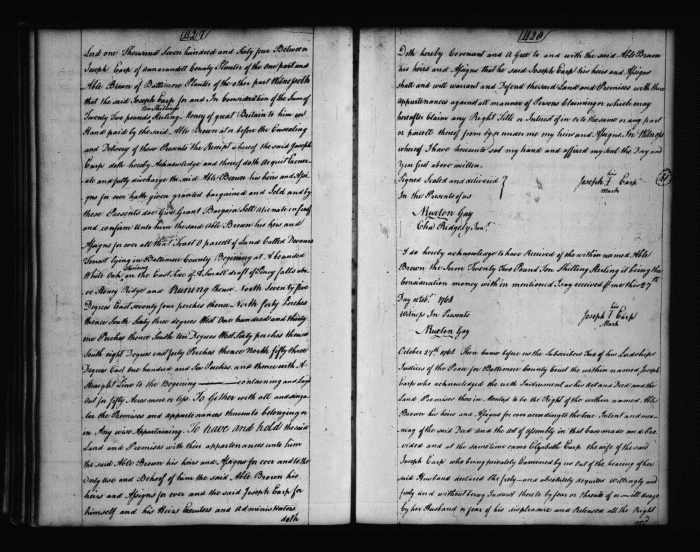 427
Lord one Thousand Seven hundred and Sixty four Between
Joseph Earp of Annarundell County Planter of the one part and
Able Brown of Baltimore Planter of the other part Witnesseth
that he said Joseph Earp for and In Consideration of the Sum of
Ten Shillings
Twenty Two pounds Sterling Money of great Britain to him in
Hand paid by the said Able Brown at or before the Ensealing
and Delivery of these Presents the Receipt whereof the said Joseph
Earp doth hereby Acknowledge and thereof doth Acquit Exoner-
ate and fully discharge the said Able Brown his heirs and Assi
gns for ever hath given granted bargained and Sold and by
these Presents doe Give Grant Bargain Sell Alienate in feof
and confirm Unto him the said Able Brown his heirs and
Assigns for ever all that Tract or parcell of Land Called
Forrest lying in Baltimore County Begining at A bounded
Standing
White Oak on the East Side of A small draft of Piney falls above
or Stoney Ridge and Runing thence North Seventy five
Degrees East seventy four perches thence North forty Perches
thence South Sixty three degrees West One hundred and thirty
one Perches thence South ten Degrees West Sixty perches thence
South eight Degrees east forty Perches thence North fifty three
Degrees East one hundred and Six Perches and thence with A
Straight Line to the Begining containing and Laid
Out for fifty Acres more or less To Gether with all and singu
lar the Premises and appurtenances thereunto belonging or
in Any wise Appertaining To have and hold the said
Land and Premises with their appurtenances unto him
the said Able Brown his heirs and Assigns for ever and to the
Only Use and Behoof of him the said Able Brown his
heirs and Assigns for ever and the said Joseph Earp for
himself and his Heirs Executors and Administrators
doth
428
Doth hereby Covenant and A Gree to and with the said Able Brown
his heirs and Assigns that he said Joseph Earp his heirs and Assigns
shall and will warrant and Defend the said Land and Premises with their
appurtenances against all manner of Persons Claiming or which may
hereafter claim any Right Title or Interest of in or to the same or any part
or parcell thereof from by or under me my heirs and Assigns In Witness
whereof I have hereunto set my hand and affixed my Seal the Day and
Year first above written
Signed Sealed and delivered
In the Presents of us
Joseph I Earp
his
Mark
Murton Gay
Cha Ridgely Junr
I do hereby acknowledge to have Received of the within named Able
Brown the Sum Twenty Two Pound Ten Shilling Sterling it being the
Consideration money with in mentioned I say received by me this 27th
Day 1764
Witness In Presents
Joseph I Earp
his
Mark
Murton Gay
October 27th 1764 Then Came before us the Subscribers Two of his Lordships
Justices of the Peace for Baltimore County Court the within named Joseph
Earp who acknowledged the with Instrument as his Act and Deed and the
Land Premises therein Mention to be the Right of the within named Able
Brown his heirs and Assigns for ever according to the true Intent and mea
ning of the said Deed and the act of Assembly in that Case made and Pro
vided and at the same time came Elizabeth Earp the wife of the said
Joseph Earp who being privately Examined by us Out of the hearing of her
said Husband declared she freely and absolutely acquitted Willingly and
freely and without being Induced thereto by fear or threats of or ill usage
by her Husband or fear of his displeasure and Released all the Right
and